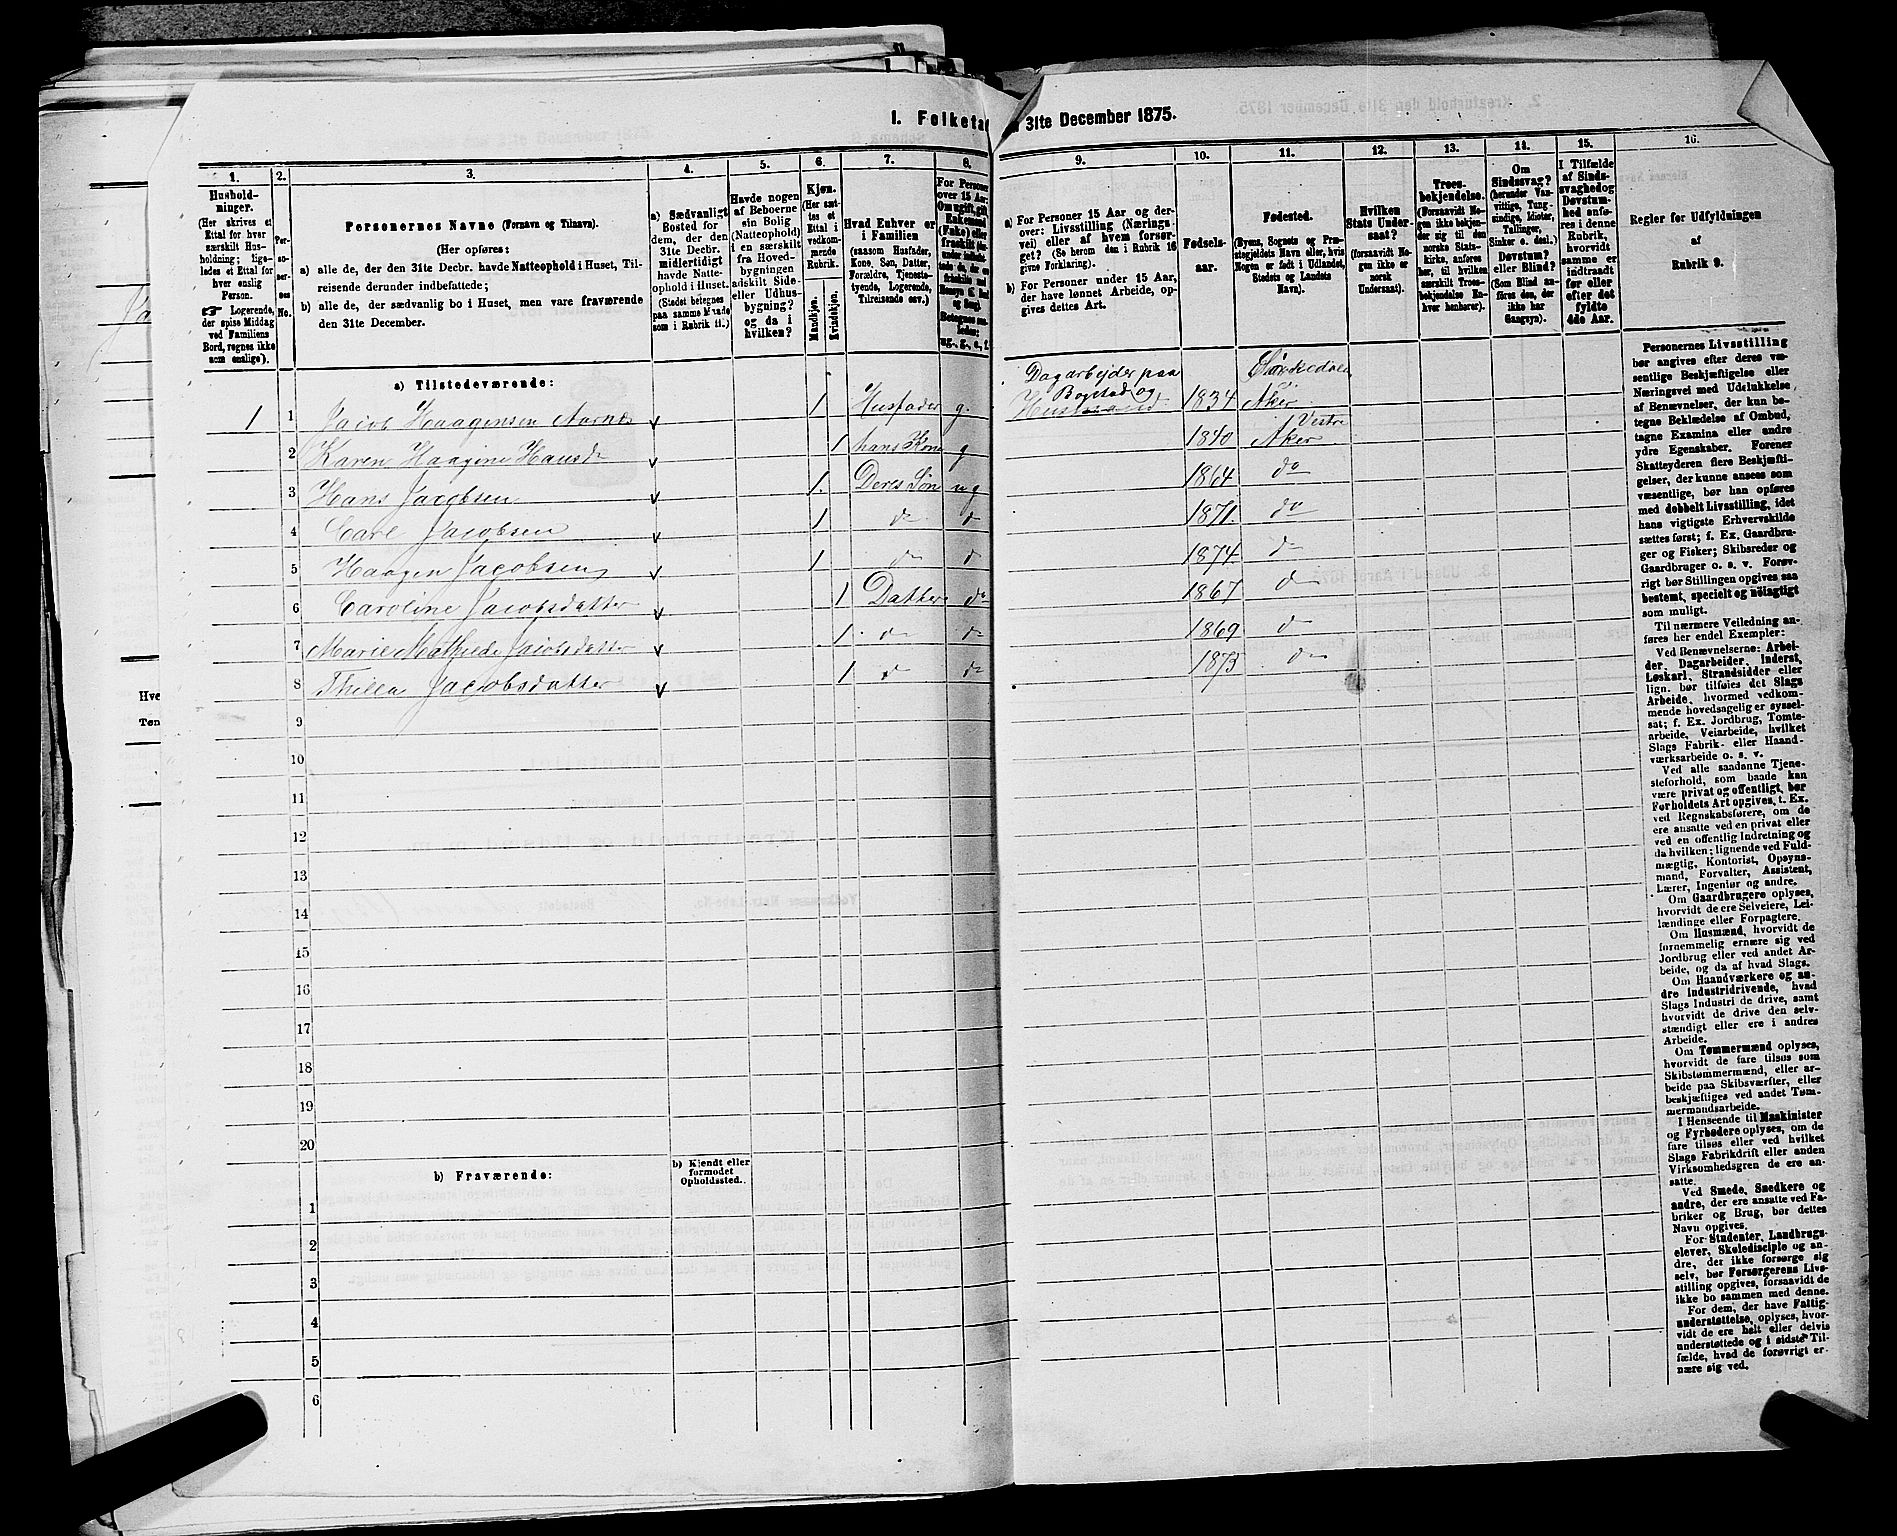 1. Folketæ
n 31te December 1875.
1.
Hushold-
ninger.
(Her skrives et
Ettal for hver
særskilt Hus-
holdning; lige-
ledes et Ettal for
hver enslig
Person.
☞ Logerende,
der spise Middag
ved Familiens
Bord, regnes ikke
som enslige).
2.
Per-
so-
ner-
nes
No.
3.
Personernes Navne (Fornavn og Tilnavn).
(Her opføres:
a) alle de, der den 31te Decbr. havde Natteophold i Huset, Til-
reisende derunder indbefattede;
b) alle de, der sædvanlig bo i Huset, men vare fraværende
den 31te December.
4.
a) Sædvanligt
Bosted for
dem, der den
31te Decbr.
midlertidigt
havde Natte-
ophold i Huset.
(Stedet betegnes
paa samme Maade
som i Rubrik 11.)
5.
Havde nogen
af Beboerne
sin Bolig
(Natteophold)
i en særskilt
fra Hoved-
bygningen
adskilt Side-
eller Udhus-
bygning?
og da i
hvilken?
6.
Kjøn.
(Her sæt-
tes et
Ettal i
vedkom-
mende
Rubrik.
Mandkjøn.
Kvindekjøn.
7.
Hvad Enhver er
i Familien
(saasom Husfader,
Kone, Søn, Datter,
Forældre, Tjeneste-
tyende, Logerende,
Tilreisende osv.)
8.
For Personer
over 15 Aar:
Om ugift, gift,
Enkemand
(Enke) eller
fraskilt
ug., g., e., f.
9.
a) For Personer 15 Aar og der-
over: Livsstilling (Nærings-
vei) eller af hvem forsør-
get? (Se herom den i Rubrik 16
givne Forklaring).
b) For Personer under 15 Aar,
der have lønnet Arbeide, op-
gives dettes Art.
10.
Fødsels-
aar.
11.
Fødested.
(Byens, Sognets og Præ-
stegjeldets Navn eller, hvis
Nogen er født i Udlandet,
Stedets og Landets
Navn).
12.
Hvilken
Stats Under-
saat?
(forsaavidt No-
gen ikke er
norsk
Undersaat).
13.
Troes-
bekjendelse.
(Forsaavidt No-
gen ikke bekjen-
der sig til den
norske Stats-
kirke, anføres
her, til hvilken
særskilt Troes-
bekjendelse En-
hver henhører).
14.
Om
Sindssvag?
(herunder Van-
vittige, Tung-
sindige, Idioter,
Tullinger,
Sinker o. desl.)
Døvstum?
eller Blind?
(Som Blind an-
føres den, der
ikke har
Gangsyn).
15.
I Tilfælde
af Sinds-
svaghed og
Døvstum-
hed anfø-
res i denne
Rubrik,
hvorvidt
samme er
indtraadt
før eller
efter det
fyldte
4de Aar.
16.
Regler for Udfyldningen
af
Rubrik 9.
a) Tilstedeværende:
1 1 Jacob Haagensen Aarnæs v 1 Husfader g. Dagarbejder paa Bogstad og Husmand 1834 Sørkedalen Aker
2 Karen Haagine Hansdr v 1 hans Kone g 1840 Vestre Aker
3 Hans Jacobsen v 1. Deres Søn ug 1864 do
4 Carl Jacobsen v 1 do do 1871. do
5 Haagen Jacobsen v 1 do do 1874. do
6 Caroline Jacobsdatter v 1 Datter do 1867. do
7 Marie Mathilde Jacobsdatter v 1. do do 1869. do
8 Thilla Jacobsdatter v 1 do do 1873. do
9
10
11
12
13
14
15
16
17
18
19
20
b) Fraværende:
b) Kjendt eller
formodet
Opholdssted.
1
2
3
4
5
6
Personernes Livsstilling
bør angives efter deres væ-
sentlige Beskjæftigelse eller
Næringsvei med Udelukkelse
af Benævnelser, der kun be-
tegne Beklædelse af Ombud,
tagne Examina eller andre
ydre Egenskaber. Forener
Skatteyderen flere Beskjæfti-
gelser, der kunne ansees som
væsentlige, bør han opføres
med dobbelt Livsstilling, idet
hans vigtigste Erhvervskilde
sættes først; f. Ex. Gaardbru-
ger og Fisker; Skibsreder og
Gaardbruger o. s. v. Forøv-
rigt bør Stillingen opgives saa
bestemt, specielt og nøiagtigt
som muligt.
Til nærmere Veiledning an-
føres her endel Exempler:
Ved Benævnelserne: Arbei-
der, Dagarbeider, Inderst,
Løskarl, Strandsidder eller
lign. bør tilføies det Slags
Arbeide, hvormed vedkom-
mende hovedsagelig er syssel-
sat; f. Ex. Jordbrug, Tomte-
arbeide, Veiarbeide, hvilket
Slags Fabrik- eller Haand-
værksarbeide o. s. v.
Ved alle saadanne Tjene-
steforhold, som baade kan
være privat og offentligt, bør
Forholdets Art opgives, t. Ex.
ved Regnskabsførere, om de
ere ansatte ved en privat eller
ved en offentlig Indretning og
da hvilken; lignende ved Fuld-
mægtig, Kontorist, Opsyns-
mand, Forvalter, Assistent,
Lærer, Ingeniør og andre.
Om Gaardbrugere oplyses,
hvorvidt de ere Selveiere, Lei-
lændinge eller Forpagtere.
Om Husmænd, hvorvidt de
fornemmelig ernære sig ved
Jordbrug eller ved andet Ar-
beide, og da af hvad Slags.
Om Haandværkere og an-
dre Industridrivende, hvad
Slags Industri de drive, samt
hvorvidt de drive den selv-
stændigt eller ere i andres
Arbeide.
Om Tømmermænd oplyses,
hvorvidt de fare tilsøs som
Skibstømmermænd, eller ar-
beide paa Skibsværfter, eller
beskjæftiges ved andet Tøm-
mermandsarbeide.
I Henseende til Maskinister
og Fyrbødere oplyses, om de
fare tilsøs eller ved hvilket
Slags Fabrikdrift eller anden
Virksomhedsgren de ere an-
satte.
Ved Smede, Snedkere og
andre, der ere ansatte ved Fa-
briker og Brug, bør dettes
Navn opgives.
For Studenter, Landbrugs-
elever, Skoledisciple og an-
dre, der ikke forsørge sig
selv, bør Forsørgerens Livs-
stilling opgives, forsaavidt de
ikke bo sammen med denne.
For dem, der have Fattig-
understøttelse, oplyses, hvor-
vidt de ere helt eller delvis
understøttede og i sidste Til-
fælde, hvad de forøvrigt er-
nære sig ved.